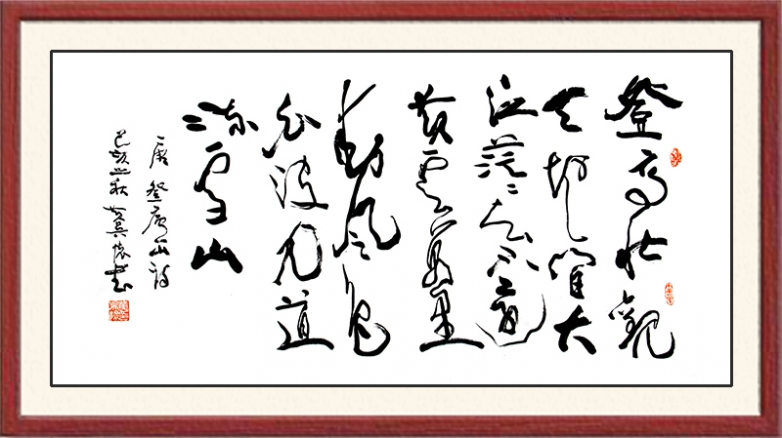 登高壮觀
天地間大
江茫〻去不還
黄雲萬里
動風色
白波九道
流雪山
登廬山诗
己亥之秋 書